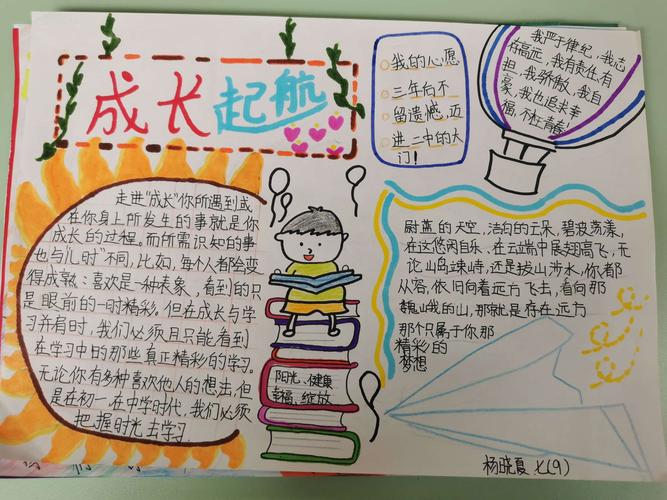 成长起航
我的心愿
三年后不
留遗憾，迈
进二中的大
门！
我严于律纪，我志
存高远，我有责任，有
担，我骄傲，我自
豪，我也追求幸
福，不枉青春！
走进“成长”你所遇到或
在你身上所发生的事就是你
成长的过程。而所需识知的事
也与儿时不同，比如，每个人都会变
得成熟：喜欢是一种表象，看到的只
是眼前的一时精彩。但在成长与学
习并有时，我们必须且只能看到
在学习中的那些真正精彩的学习。
无论你有多种喜欢他人的想法，但
是在初一，在中学时代，我们必须
把握时光去学习
阳光、健康
幸福、绽放
尉蓝的天空，洁白的云朵，碧波荡漾，
在这悠闲自乐、在云端中展翅高飞，无
论山鸟竦峙，还是拔山涉水，你都
从容，依旧向着远方飞去，看向那
巍山峨的山，那就是存在远方
那个只属于你那
精彩的
梦想
杨晓夏 七(9)